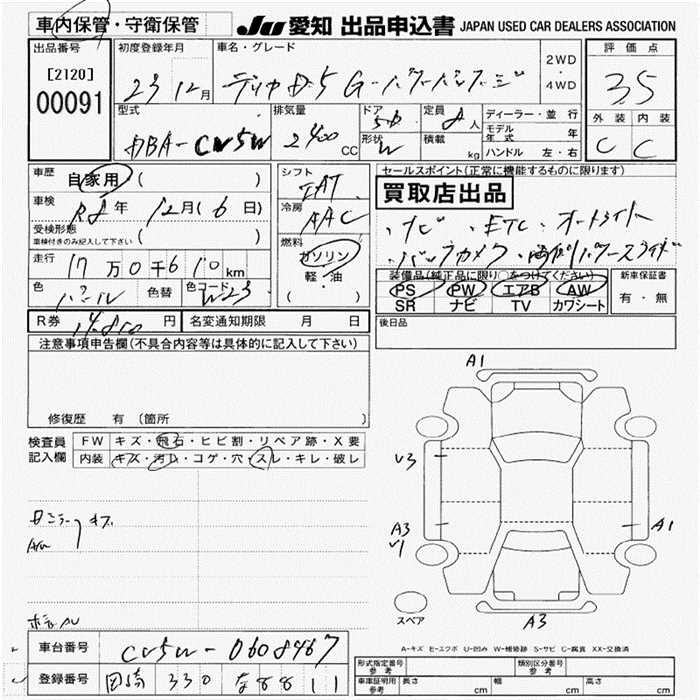 車内保管・守衛保管
JU 愛知 出品申込書 JAPAN USED CAR DEALERS ASSOCIATION
出品番号
[2120]
00091
初度登録年月
23 12月
車名・グレード
デリカD:5 G-パワーパッケージ
2WD
・
4WD
評価点
3.5
外装 内装
C C
型式
DBA-CV5W
排気量
2400 CC
ドア
5D
形状
W
定員
8人
積載
kg
ディーラー・並行
モデル年式 年
ハンドル 左・右
車歴
自家用 ( )
車検
R8年 12月(6日)
受検形態
車検付きのみ記入して下さい ( )
走行
17万0千610km
色
パール
色替
色コード
W23
R券 14,810円
名変通知期限 月 日
シフト
IAT
冷房
AAC
燃料
ガソリン
軽・油
( )
セールスポイント(正常に機能するものに限ります)
買取店出品
・ナビ ・ETC・オートライト
・バックカメラ・両側パワースライド
装備品(純正品に限り○をつけてください)
PS PW エアB AW
SR ナビ TV カワシート
新車保証書
有・無
後日品
注意事項申告欄(不具合内容等は具体的に記入して下さい)
修復歴 有(箇所 )
検査員記入欄
FW キズ・飛石・ヒビ割・リペア跡・X要
内装 キズ・汚レ・コゲ・穴・スレ・キレ・破レ
A1
V3
A3
V1
A1
A3
スペア
A-キズ E-エクボ U-凹み W-補修跡 S-サビ C-腐食 XX-交換済
車台番号 CV5W-0608467
登録番号 岡崎 330 な 88 11
型式指定番号
参考
類別区分番号
参考
車庫証明用
参考
長さ cm 幅 cm 高さ cm